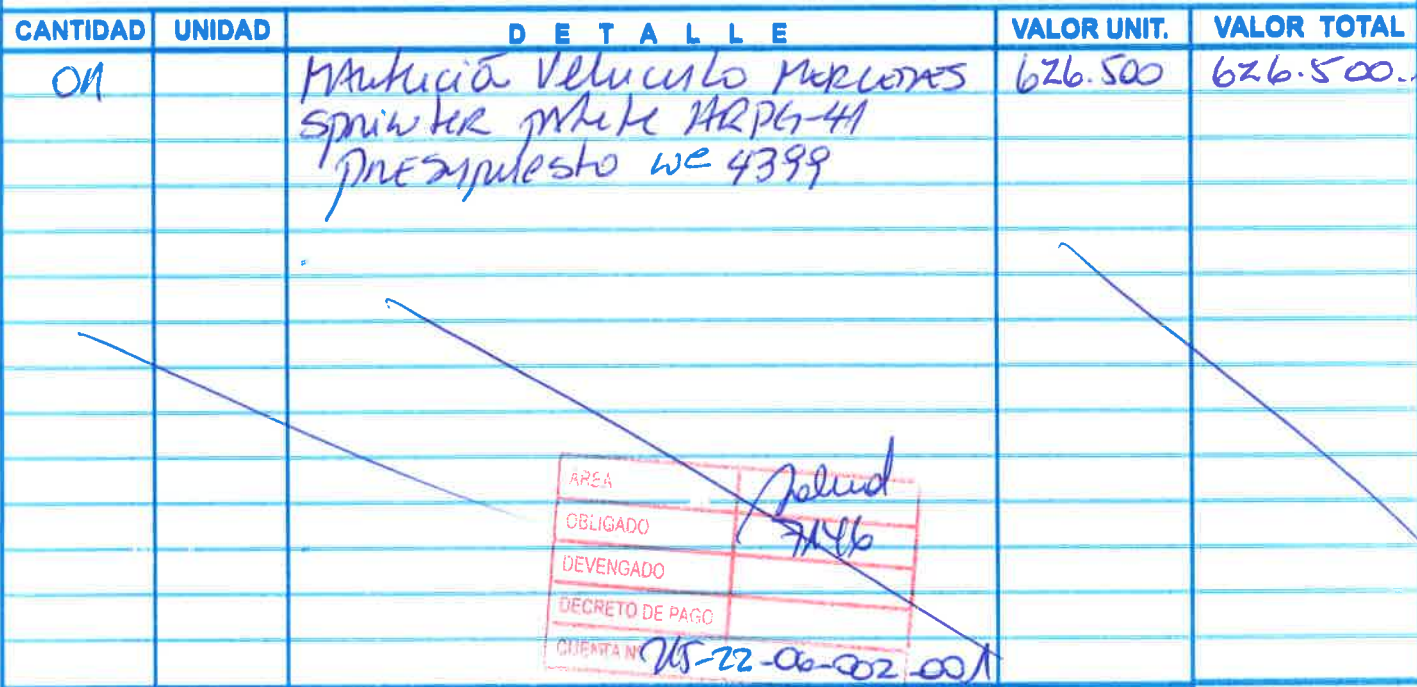 CANTIDAD UNIDAD DETALLE VALOR UNIT. VALOR TOTAL
01 Mantención Vehículo MERCEDES 626.500 626.500.-
sprinter patente
Presupuesto 4399
AREA Salud
OBLIGADO 7146
DEVENGADO
DECRETO DE PAGO
CUENTA Nº 215-22-06-002-001